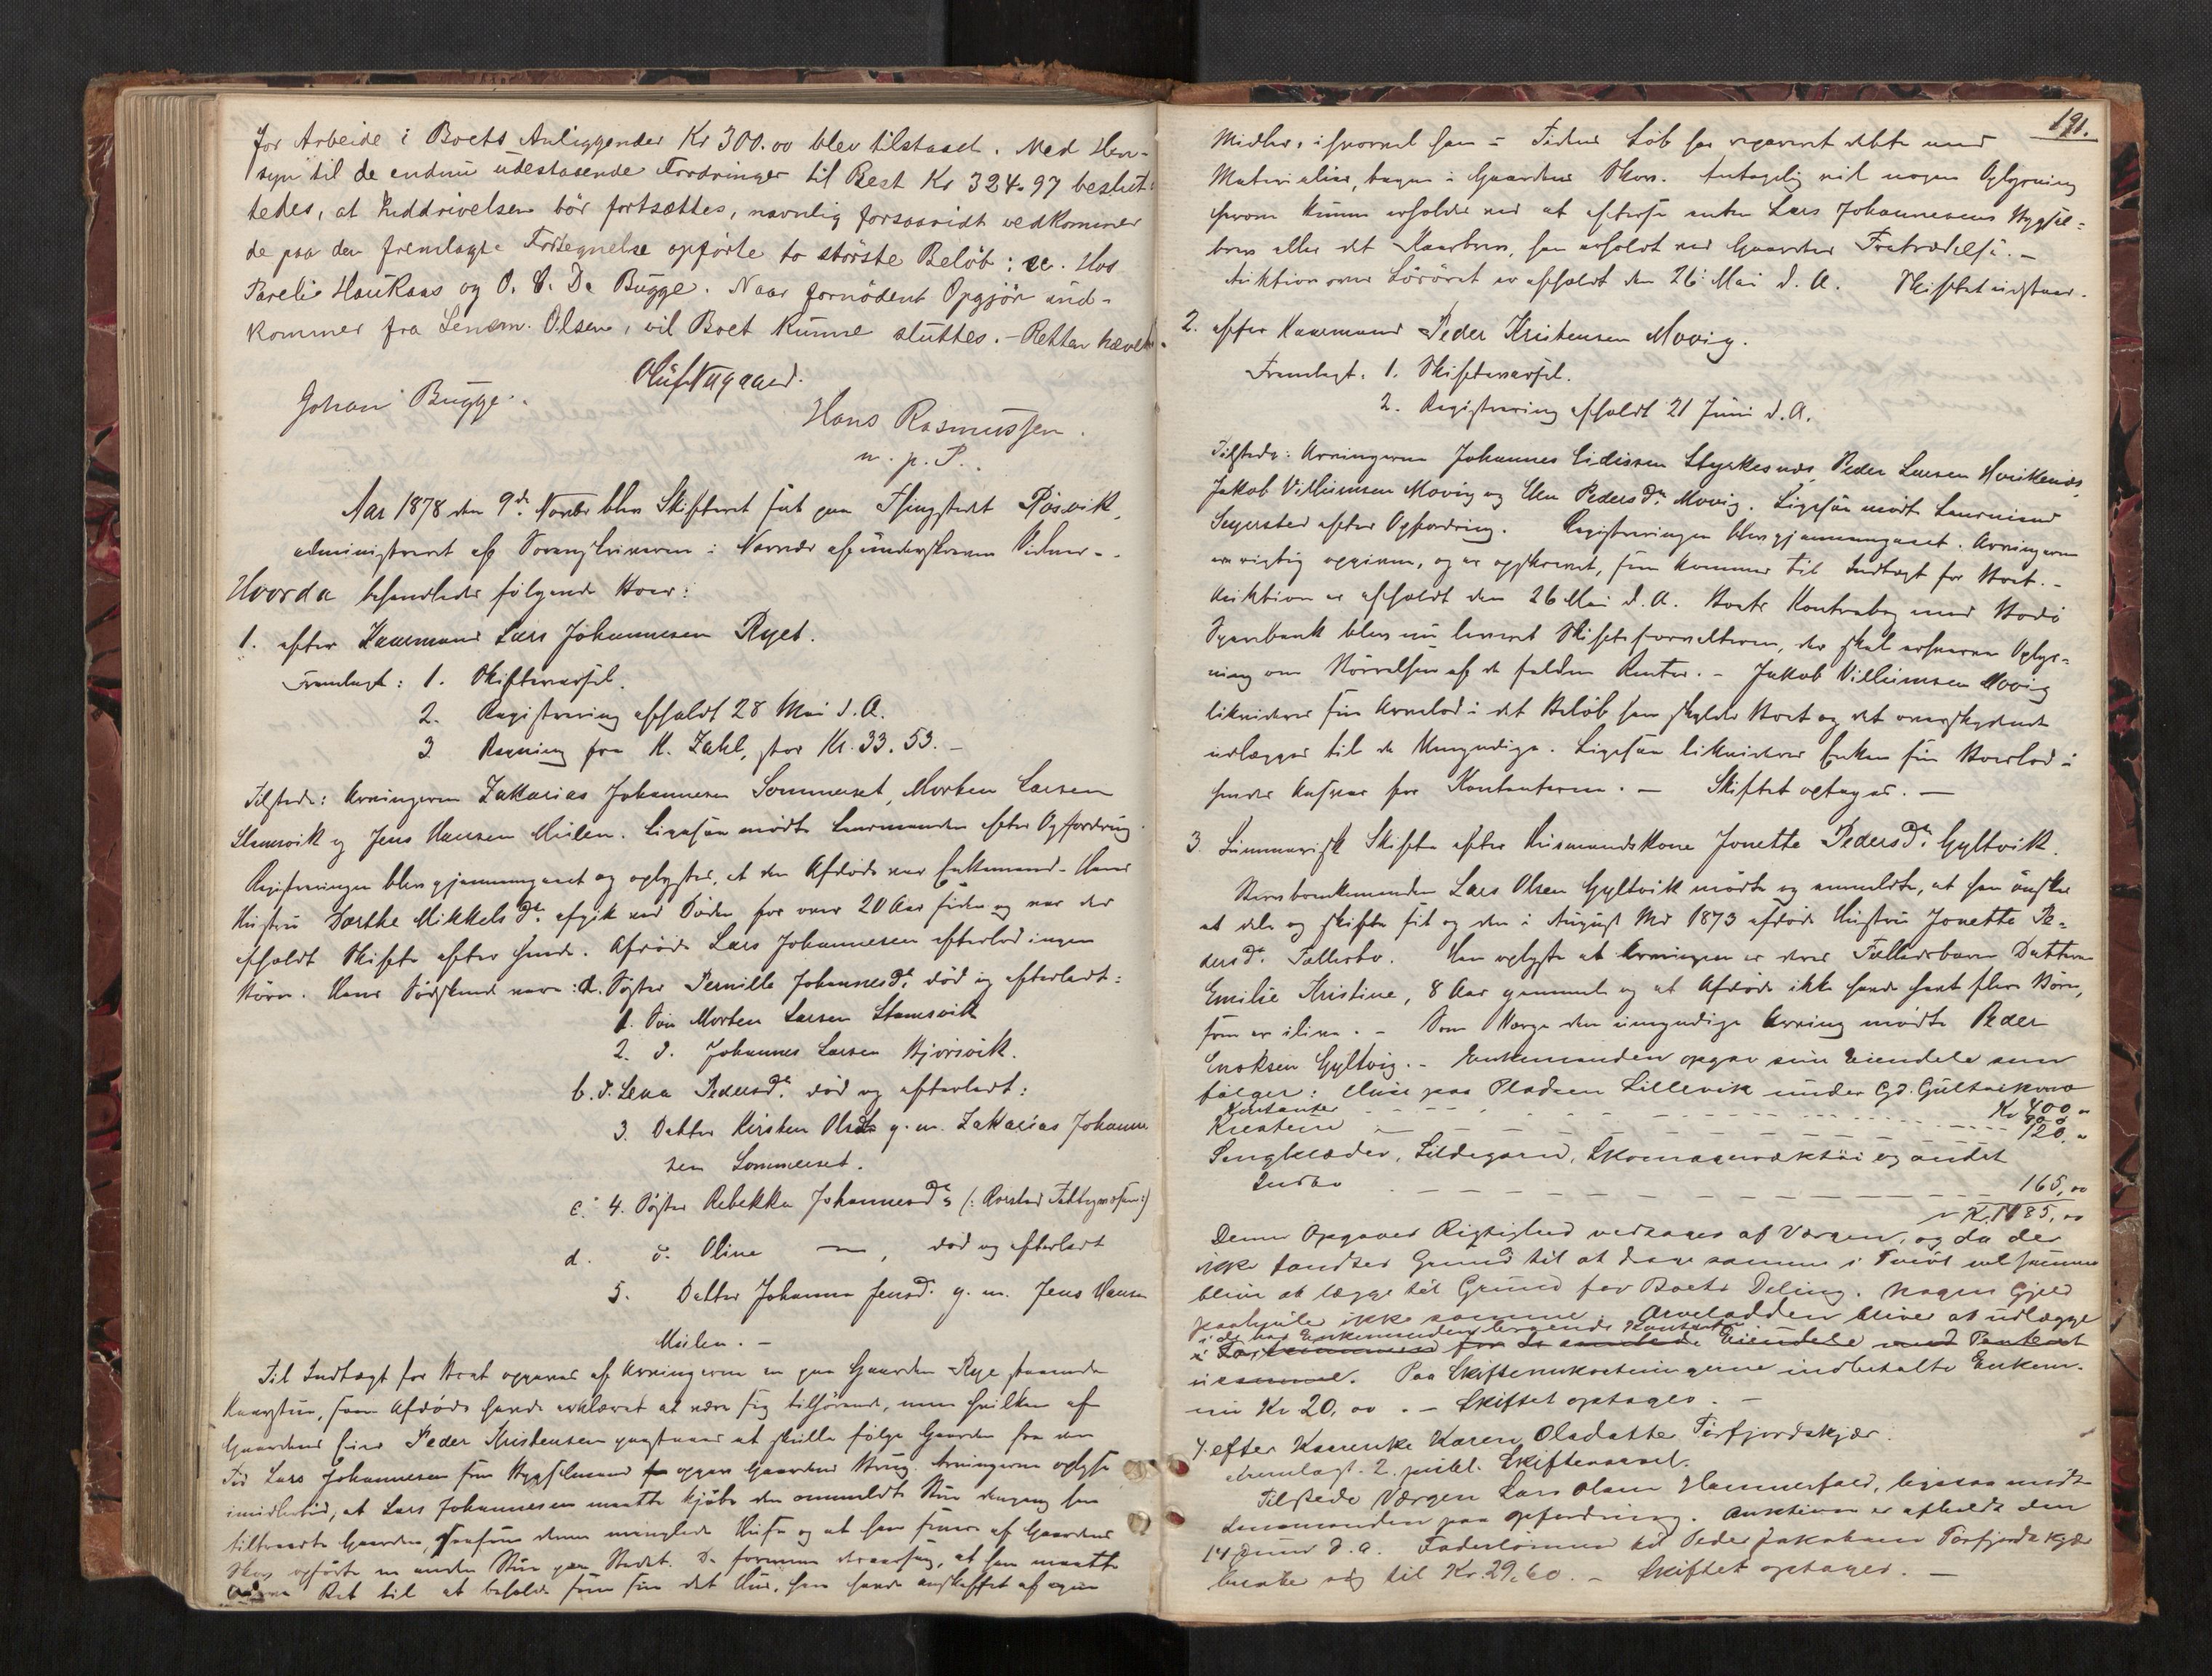 for Arbeide i Boets Anliggender Kr 300.00 blev tilstaaet. Med Hen-
syn til de endnu udestaaende Fordringer til Rest Kr 324.97 beslut-
tedes, at Inddrivelsen bör fortsættes, navnlig forsaavidt vedkommer
de paa den fremlagte Fortegnelse opførte to største Beløb: sc. Hos
Parelie Haukaas og O. C. D. Bugge. Naar fornödent Opgjör ind-
kommer fra Lensm. Olsen, vil Boet kunne sluttes. - Retten hævet.
Oluf Nygaard.
Johan Bugge.
Hans Rasmussen.
m. p. P.
Aar 1878 den 9de Novbr blev Skifteret sat paa Thingstedet Røsvik,
administreret af Sorenskriveren i Nærvær af underskrevne Vidner. -
Hvorda behandledes følgende Boer:
1. efter Kaarmand Lars Johannesen Ryet.
Fremlagt: 1. Skiftevarsel.
2. Registrering afholdt 28 Mai d. A.
3 Regning fra K. Zahl, stor Kr. 33.53. -
Tilstede: Arvingerne Zakarias Johannesen Sommerset, Morten Larsen
Stamsvik og Jens Hansen Mulen. Ligesaa mødte Lensmanden efter Opfordring.
Registreringen blev gjennemgaaet og oplystes, at den Afdøde var Enkemand. Hans
Hustru Dorthe Mikkelsdr. afgik ved Døden for over 20 Aar siden og var der
afholdt Skifte efter hende. Afdøde Lars Johannesen efterlod ingen
Børn. Hans Sødskende vare: a. Søster Pernille Johannesdr. død og efterladt:
1. Søn Morten Larsen Stamsvik
2. d. Johannes Larsen Bjørsvik.
b. d. Lena Pedersdr. død og efterladt:
3. Datter Kirsten Olsdr g. m. Zakarias Johanne
sen Sommerset.
c. 4. Søster Rebekka Johannesdr
d. d. Oline — , død og efterladt
5. Datter Johanna Jensdr. g. m. Jens Hansen
Mulen. -
Til Indtægt for Boet opgaves af Arvingerne en paa Gaarden Rye staaende
Kaarstue, som Afdøde havde erklæret at være sig tilhørende, men hvilken af
Gaardens Eier Peder Kristensen paastaaes at skulle følge Gaarden fra den
Tid Lars Johannesen som Bygselmand opgav Gaardens Brug. Arvingerne oplyste
imidlertid, at Lars Johannesen maatte kjøbe den ommeldte Stue dengang han
tiltraadte Gaarden, saasom denne manglede Huse og at han senere af Gaardens
Skov opførte en anden Stue paa Stedet. De formene derfor, at han maatte
have Ret til at beholde som sin det Hus, han havde anskaffet af egne
191.
Midler, i hvorvel han i Tidens Løb har repareret dette med
Materialier, tagne i Gaardens Skov. Antagelig vil nogen Oplysning
herom kunne erholdes ved at efterse enten Lars Johannesens Bygsel-
brev eller det Kaarbrev, han erholdt ved Gaardens Fratrædelse. -
Auktion over Løsøret er afholdt den 26 Mai d. A. Skiftet udstaar.
2. efter Kaarmand Peder Kristensen Movig.
Fremlagt. 1. Skiftevarsel.
2. Registrering afholdt 21 Juni d. A.
Tilstede: Arvingerne Johannes Eidissen Styrkesnæs, Peder Larsen Hovikenæs,
Jakob Villumsen Movig og Elen Pedersdr. Movig. Ligesaa mødte Lensmand
Segersted efter Opfordring. Registreringen blev gjennemgaaet. Arvingerne
ere rigtig opgivne, og er opskrevet, som kommer til Indtægt for Boet. -
Auktion er afholdt den 26 Mai d. A. Boets Kontrabog med Bodø
Sparebank blev nu leveret Skifteforvalteren, der skal erhverve Oplys-
ning om Størrelsen af de faldne Renter. - Jakob Villumsen Movig
likviderer sin Arvelod i det Beløb han skylder Boet og det overskydende
udlægges til de Umyndige. Ligesaa likviderer Enken sin Boeslod i
hendes Ansvar for Kontanterne. - Skiftet optages. -
3. Summarisk Skifte efter Husmandskone Jonette Pedersdr. Gyltvik.
Stervboenkemanden Lars Olsen Gyltvik mødte og anmeldte, at han ønsker
at dele og skifte sit og den i August Md 1873 afdøde Hustru Jonette Pe-
dersdr. Fællesbo. Han oplyste at Arvingen er deres Fællesbarn Datteren
Emilie Kristine, 8 Aar gammel og at Afdøde ikke havde havt flere Børn,
som er ilive. - Som Værge den umyndige Arving mødte Peder
Enoksen Gyltvig. - Enkemanden opgav sine Eiendele som
følger: Huse paa Pladsen Lillevik under Gd. Gultvik Kr 400 "
Kontanter - - - 800
Kreature - - - 120. "
Sengklæder, Sildegarn, Skomagerværktøi og andet
Indbo - - - 165,00
Kr. 1485,00
Denne Opgaves Rigtighed vedtages af Værgen, og da der
ikke fandtes Grund til at drage samme i Tvivl vil samme
blive at lægge til Grund for Boets Deling. Nogen Gjæld
paahviler ikke samme. Arvelodden bliver at udlægge
i de hos Enkemanden beroende Kontanter
i Løs for de samlede Eiendele med Panteret
i samme. Paa Skifteomkostningerne indbetalte Enkem.
nu Kr 20,00. - Skiftet optages. -
4. efter Kaarenke Karen Olsdatter Tørfjordskjær.
Fremlagt. 2. publ. Skiftevarsel.
Tilstede Værgen Lars Olsen Hammerfald, ligesaa mødte
Lensmanden paa Opfordring. Auktion er afholdt den
14 Juni d. A. Føderlønnen til Peder Jakobsen Tørfjordskjær
beløber sig til Kr. 29,60. - Skiftet optages. -